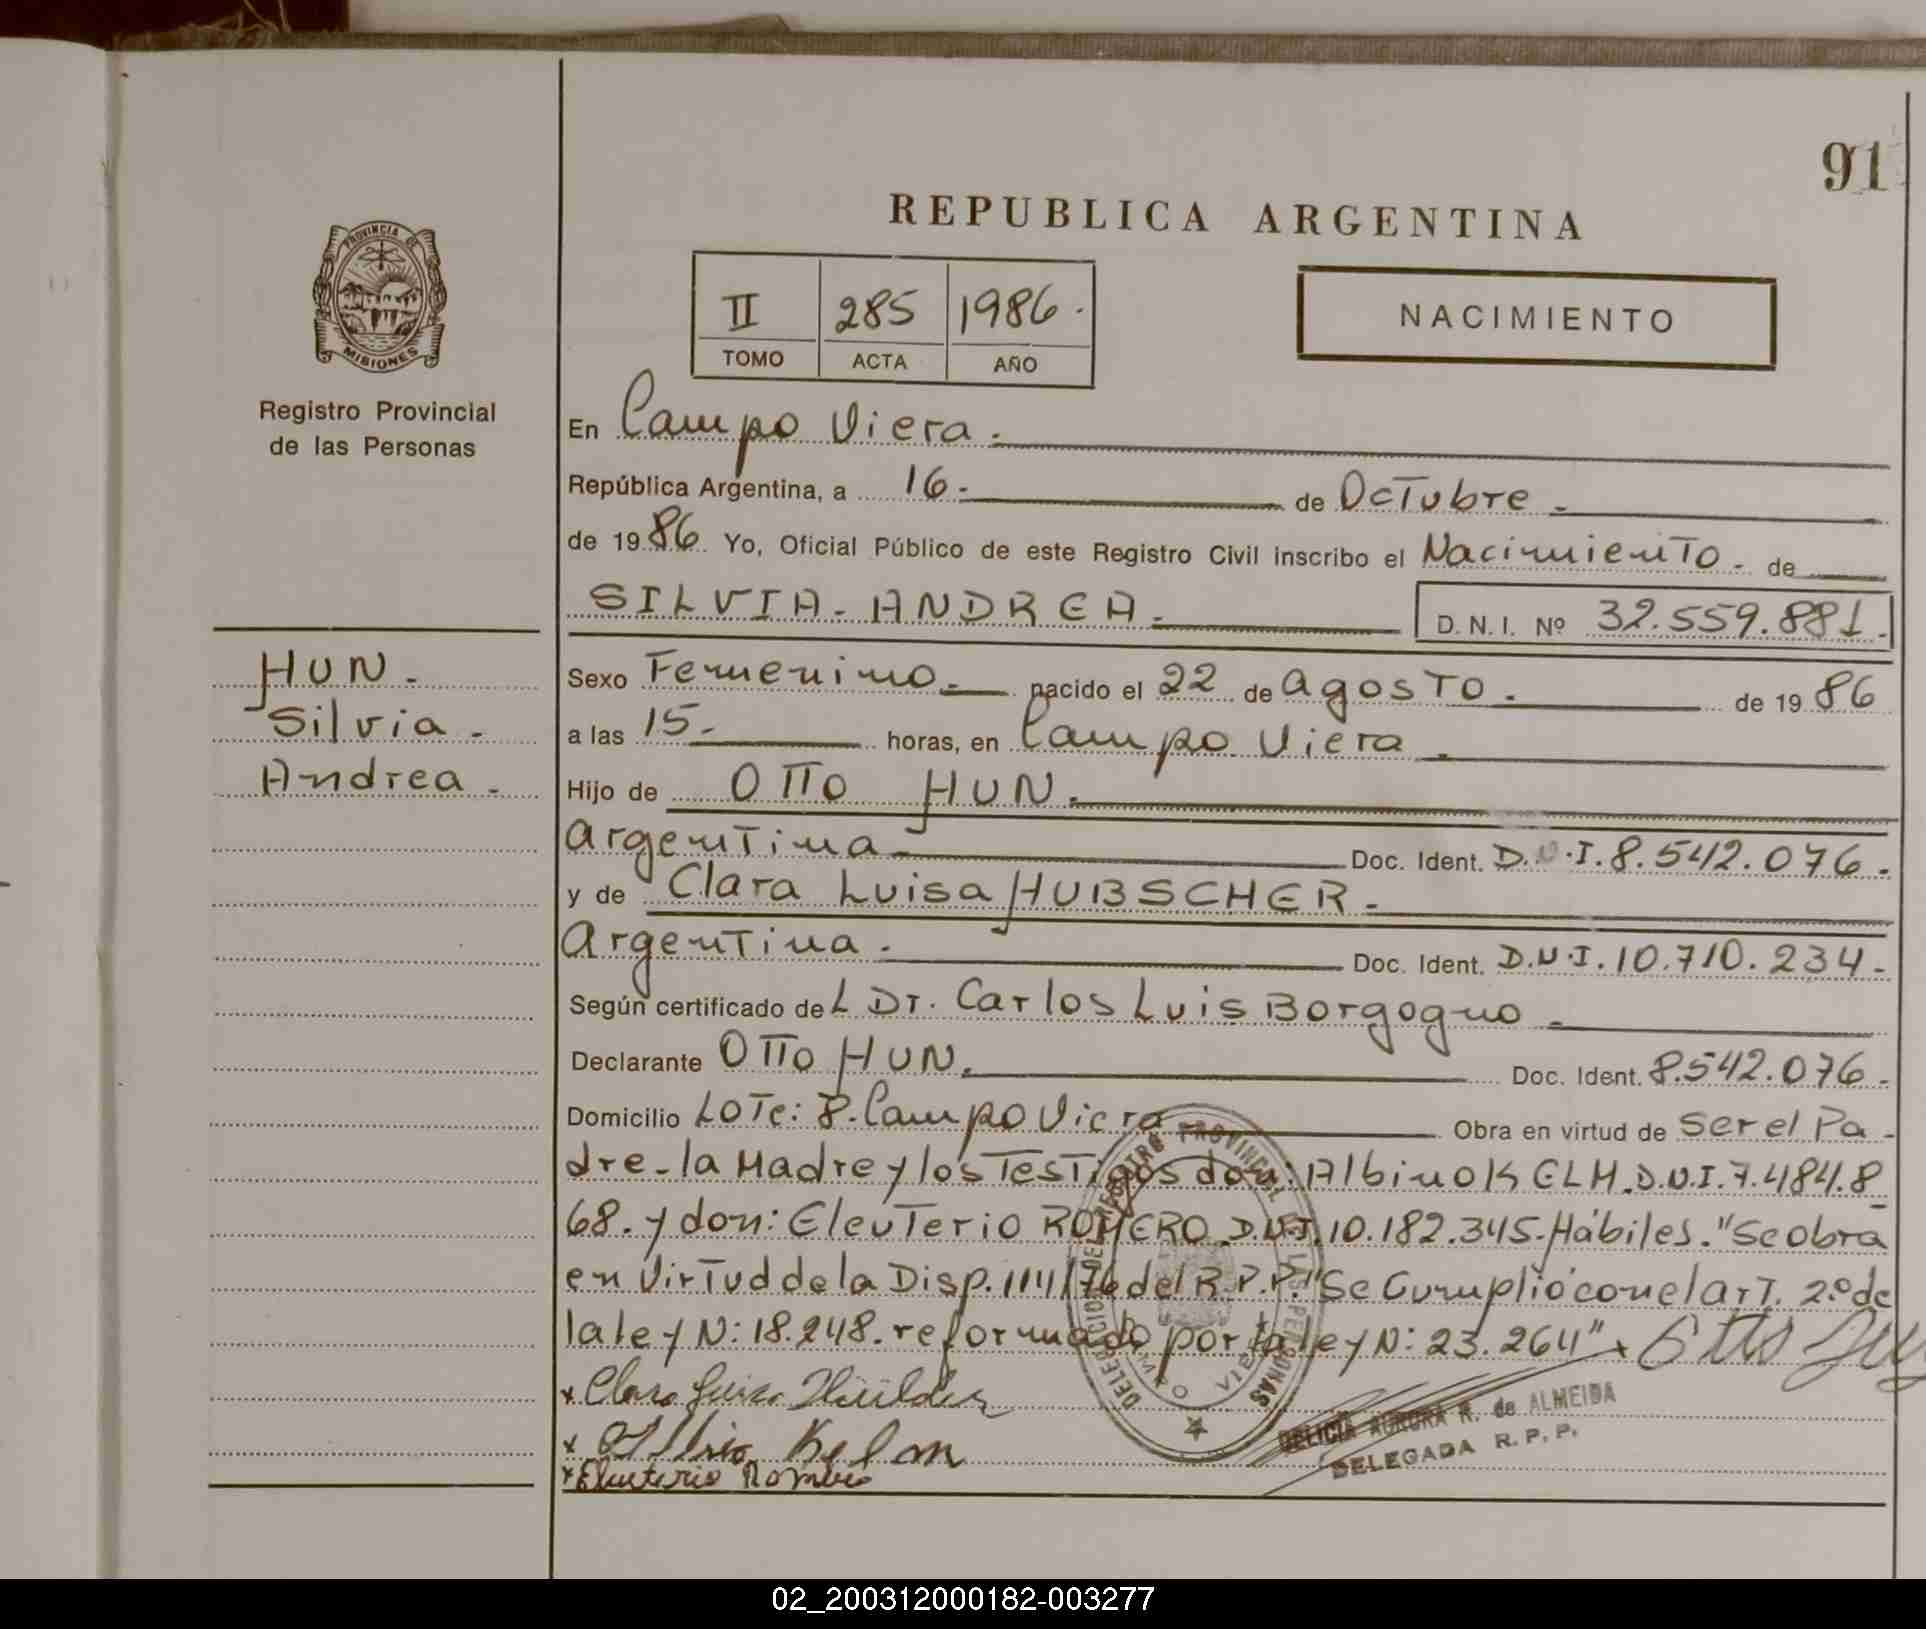 91
REPUBLICA ARGENTINA
PROVINCIA DE
MISIONES
II 285 1986.
TOMO ACTA AÑO
NACIMIENTO
Registro Provincial
de las Personas
En Campo Viera.
República Argentina, a 16. de Octubre.
de 1986. Yo, Oficial Público de este Registro Civil inscribo el Nacimiento. de
SILVIA-ANDREA. D. N. I. Nº 32.559.881.
HUN.
Silvia.
Andrea.
Sexo Femenino. nacido el 22 de agosto. de 1986
a las 15. horas, en Campo Viera.
Hijo de OTTO HUN.
Argentina Doc. Ident. D.N.I. 8.542.076.
y de Clara Luisa HUBSCHER.
Argentina. Doc. Ident. D.N.I. 10.710.234.
Según certificado del Dr. Carlos Luis Borgogno.
Declarante OTTO HUN. Doc. Ident. 8.542.076.
Domicilio Lote: 8. Campo Viera Obra en virtud de Ser el Pa-
dre - la Madre y los Testigos don: Albino KELM. D.N.I. 7.484.8
68. y don: Eleuterio ROMERO. D.N.I. 10.182.345. Hábiles. "Se obra
en Virtud de la Disp. 114/76 del R.P.P." "Se Cumplió con el art. 2º de
la ley N: 18.248. reformado por la ley N: 23.264" x Otto
x Clara Luisa
x Albino Kelm
x Eleuterio Romero
DELEGACION DEL REGISTRO PROVINCIAL DE LAS PERSONAS
CAMPO VIERA
DELICIA AURORA R. de ALMEIDA
DELEGADA R. P. P.
02_200312000182-003277